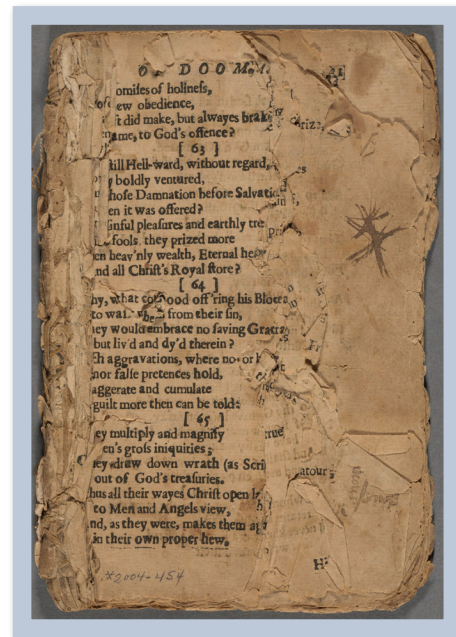 OF DOOM. 21
omises of holiness,
ew obedience,
ft did make, but alwayes brake
ame, to God's offence?
[ 63 ]
ill Hell-ward, without regard,
boldly ventured,
hose Damnation before Salvatio
en it was offered?
inful pleasures and earthly tre
fools, they prized more
en heav'nly wealth, Eternal he
nd all Christ's Royal store?
[ 64 ]
hy, what
ood off'ring his Blood
to wa
from their sin,
ey would embrace no saving Grace
but liv'd and dy'd therein?
ch aggravations, where no
nor false pretences hold,
aggerate and cumulate
guilt more then can be told:
[ 65 ]
ey multiply and magnify
en's gross iniquities;
ey draw down wrath (as Scri
out of God's treasuries.
hus all their wayes Christ open l
to Men and Angels view,
nd, as they were, makes them
in their own proper hew.
rize,
es
true
atour
*2004-454